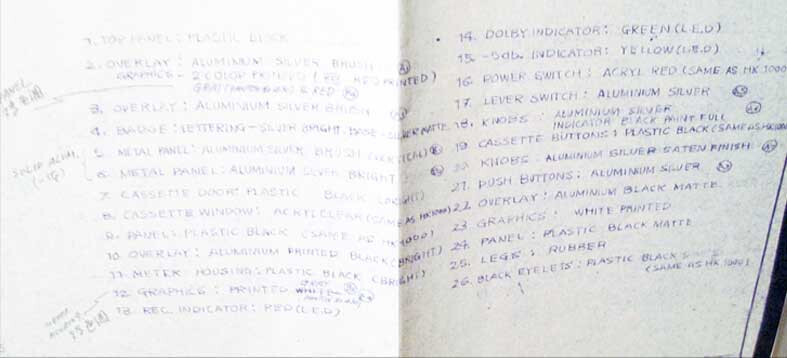 1. TOP PANEL: PLASTIC BLACK
2. OVERLAY: ALUMINIUM SILVER BRUSH
GRAPHICS - 2 COLOR PRINTED (RED PRINTED)
GRAY & RED
3. OVERLAY: ALUMINIUM SILVER BRUSH
4. BADGE: LETTERING - SILVER BRIGHT. BASE - SILVER MATTE
SOLID ALUM.
5. METAL PANEL: ALUMINIUM SILVER BRUSH (VERTICAL)
6. METAL PANEL: ALUMINIUM SILVER BRIGHT
7. CASSETTE DOOR: PLASTIC BLACK (BRIGHT)
8. CASSETTE WINDOW: ACRYL CLEAR (SAME AS HK1000)
9. PANEL: PLASTIC BLACK (SAME AS HK1000)
10. OVERLAY: ALUMINIUM PRINTED BLACK (BRIGHT)
11. METER HOUSING: PLASTIC BLACK (BRIGHT)
12. GRAPHICS: PRINTED
13. REC. INDICATOR: RED (L.E.D)
14. DOLBY INDICATOR: GREEN (L.E.D)
15. -5db. INDICATOR: YELLOW (L.E.D)
16. POWER SWITCH: ACRYL RED (SAME AS HK1000)
17. LEVER SWITCH: ALUMINIUM SILVER
18. KNOBS: ALUMINIUM SILVER
INDICATOR BLACK PAINT FULL
19. CASSETTE BUTTONS: PLASTIC BLACK (SAME AS HK1000)
20. KNOBS: ALUMINIUM SILVER SATEN FINISH
21. PUSH BUTTONS: ALUMINIUM SILVER
22. OVERLAY: ALUMINIUM BLACK MATTE
23. GRAPHICS: WHITE PRINTED
24. PANEL: PLASTIC BLACK MATTE
25. LEGS: RUBBER
26. BLACK EYELETS: PLASTIC BLACK
(SAME AS HK1000)